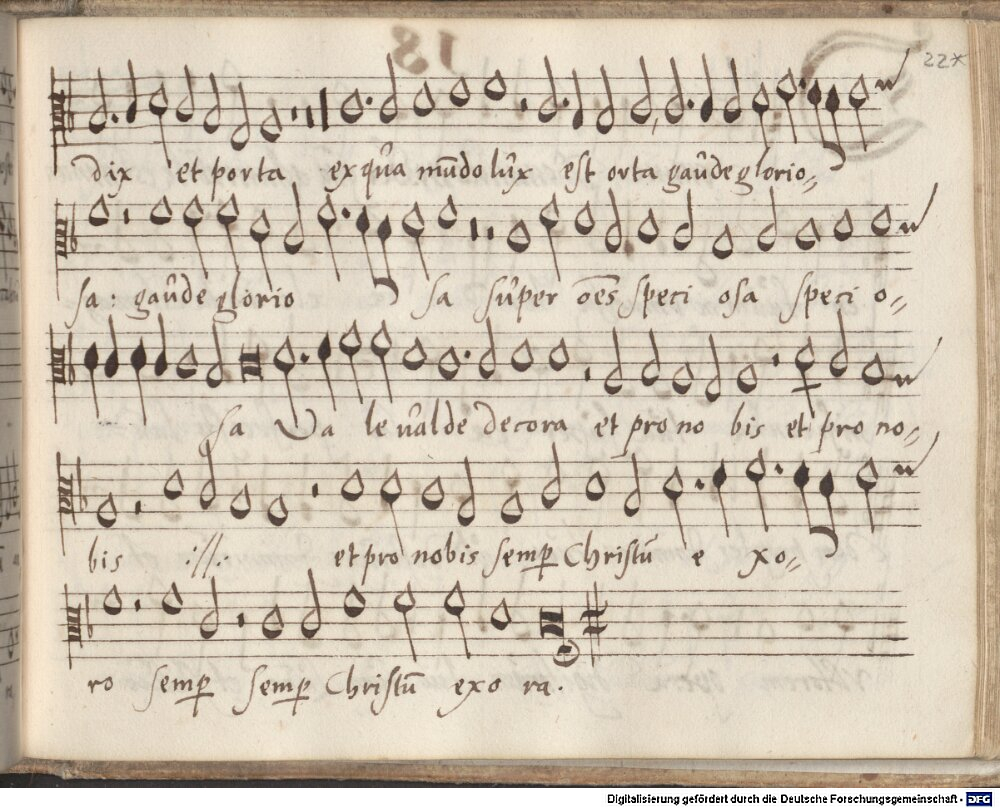 22*
dix et porta ex qûa mūdo lûx est orta gaûde glorio,,
sa: gaûde glorio sa sûper oēs speci osa speci o,,
sa Va le ûalde decora et pro no bis et pro no,,
bis ://: et pro nobis semp Christū e xo,,
ro semp semp Christū exo ra.
Digitalisierung gefördert durch die Deutsche Forschungsgemeinschaft - DFG